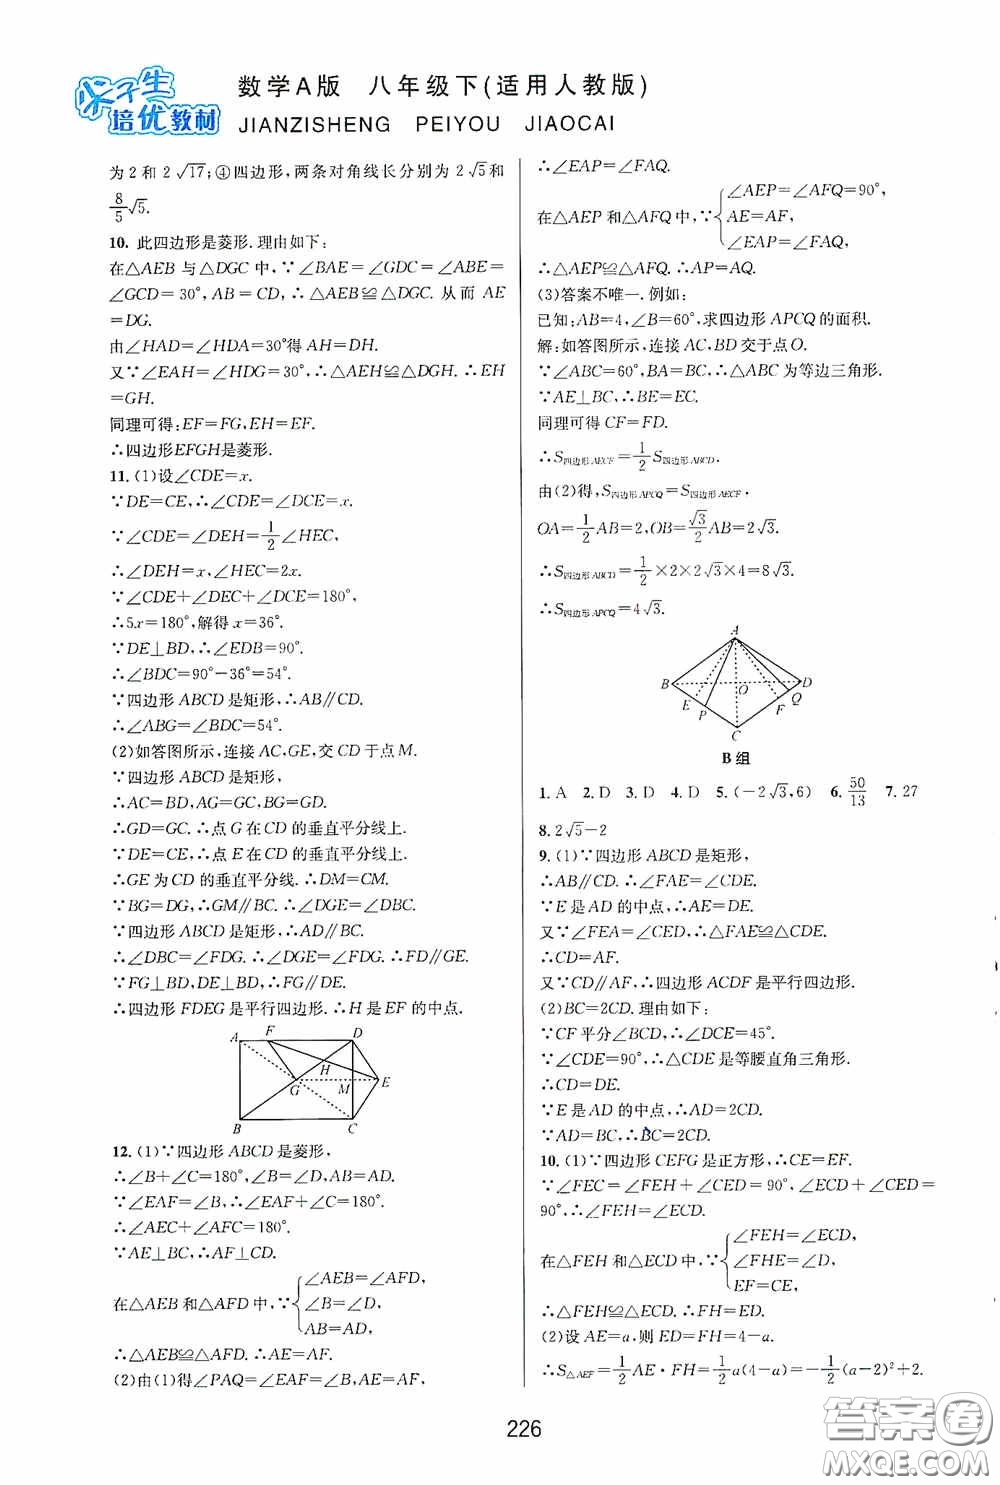 尖子生
培优教材
数学A版 八年级下(适用人教版)
JIANZISHENG PEIYOU JIAOCAI
为2和2√17;④四边形,两条对角线长分别为2√5和
8/5√5.
10. 此四边形是菱形.理由如下:
在△AEB与△DGC中,∵∠BAE=∠GDC=∠ABE=
∠GCD=30°,AB=CD,∴△AEB≌△DGC.从而AE
=DG.
由∠HAD=∠HDA=30°得AH=DH.
又∵∠EAH=∠HDG=30°,∴△AEH≌△DGH.∴EH
=GH.
同理可得:EF=FG,EH=EF.
∴四边形EFGH是菱形.
11. (1)设∠CDE=x.
∵DE=CE,∴∠CDE=∠DCE=x.
∵∠CDE=∠DEH=1/2∠HEC,
∴∠DEH=x,∠HEC=2x.
∵∠CDE+∠DEC+∠DCE=180°,
∴5x=180°,解得x=36°.
∵DE⊥BD,∴∠EDB=90°.
∴∠BDC=90°-36°=54°.
∵四边形ABCD是矩形,∴AB∥CD.
∴∠ABG=∠BDC=54°.
(2)如答图所示,连接AC,GE,交CD于点M.
∵四边形ABCD是矩形,
∴AC=BD,AG=GC,BG=GD.
∴GD=GC.∴点G在CD的垂直平分线上.
∵DE=CE,∴点E在CD的垂直平分线上.
∴GE为CD的垂直平分线.∴DM=CM.
∵BG=DG,∴GM∥BC.∴∠DGE=∠DBC.
∵四边形ABCD是矩形,∴AD∥BC.
∴∠DBC=∠FDG.∴∠DGE=∠FDG.∴FD∥GE.
∵FG⊥BD,DE⊥BD,∴FG∥DE.
∴四边形FDEG是平行四边形.∴H是EF的中点.
A F D
H
G M E
B C
12. (1)∵四边形ABCD是菱形,
∴∠B+∠C=180°,∠B=∠D,AB=AD.
∵∠EAF=∠B,∴∠EAF+∠C=180°.
∴∠AEC+∠AFC=180°.
∵AE⊥BC,∴AF⊥CD.
∠AEB=∠AFD,
在△AEB和△AFD中,∵{∠B=∠D,
AB=AD,
∴△AEB≌△AFD.∴AE=AF.
(2)由(1)得∠PAQ=∠EAF=∠B,AE=AF,
∴∠EAP=∠FAQ.
∠AEP=∠AFQ=90°,
在△AEP和△AFQ中,∵{AE=AF,
∠EAP=∠FAQ,
∴△AEP≌△AFQ.∴AP=AQ.
(3)答案不唯一.例如:
已知:AB=4,∠B=60°,求四边形APCQ的面积.
解:如答图所示,连接AC,BD交于点O.
∵∠ABC=60°,BA=BC,∴△ABC为等边三角形.
∵AE⊥BC,∴BE=EC.
同理可得CF=FD.
∴S四边形AECF=1/2S四边形ABCD.
由(2)得,S四边形APCQ=S四边形AECF.
OA=1/2AB=2,OB=√3/2AB=2√3.
∴S四边形ABCD=1/2×2×2√3×4=8√3.
∴S四边形APCQ=4√3.
A
B O D
E P F Q
C
B组
1. A 2. D 3. D 4. D 5. (-2√3,6) 6. 50/13 7. 27
8. 2√5-2
9. (1)∵四边形ABCD是矩形,
∴AB∥CD.∴∠FAE=∠CDE.
∵E是AD的中点,∴AE=DE.
又∵∠FEA=∠CED,∴△FAE≌△CDE.
∴CD=AF.
又∵CD∥AF,∴四边形ACDF是平行四边形.
(2)BC=2CD.理由如下:
∵CF平分∠BCD,∴∠DCE=45°.
∵∠CDE=90°,∴△CDE是等腰直角三角形.
∴CD=DE.
∵E是AD的中点,∴AD=2CD.
∵AD=BC,∴BC=2CD.
10. (1)∵四边形CEFG是正方形,∴CE=EF.
∵∠FEC=∠FEH+∠CED=90°,∠ECD+∠CED=
90°,∴∠FEH=∠ECD.
∠FEH=∠ECD,
在△FEH和△ECD中,∵{∠FHE=∠D,
EF=CE,
∴△FEH≌△ECD.∴FH=ED.
(2)设AE=a,则ED=FH=4-a.
∴S△AEF=1/2AE·FH=1/2a(4-a)=-1/2(a-2)²+2.
226
答案圈
MXQE.COM